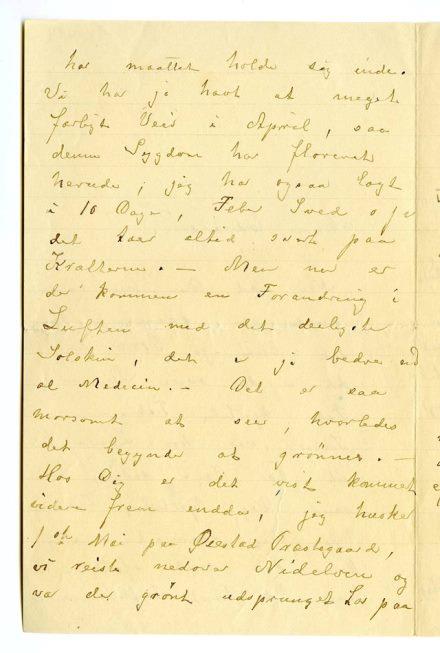 har maattet holde sig inde.
Vi har jo havt et meget
farligt Veir i April, saa
denne Sygdom har floreret
herude; jeg har ogsaa lagt
i 10 Dage, Feber Sved o s v
det tær altid svært paa
Kræfterne. — Men nu er
der kommen en Forandring i
Luften med det deiligste
Solskin, det er jo bedre end
al Medicin. — Det er saa
morsomt at see, hvorledes
det begynder at grønnes. —
Hos Dig er det vist kommet
videre frem endda, jeg husker
1ste Mai paa Øiestad Præstegaard,
vi reiste nedover Nidelven og
var der grønt udsprunget Løv paa